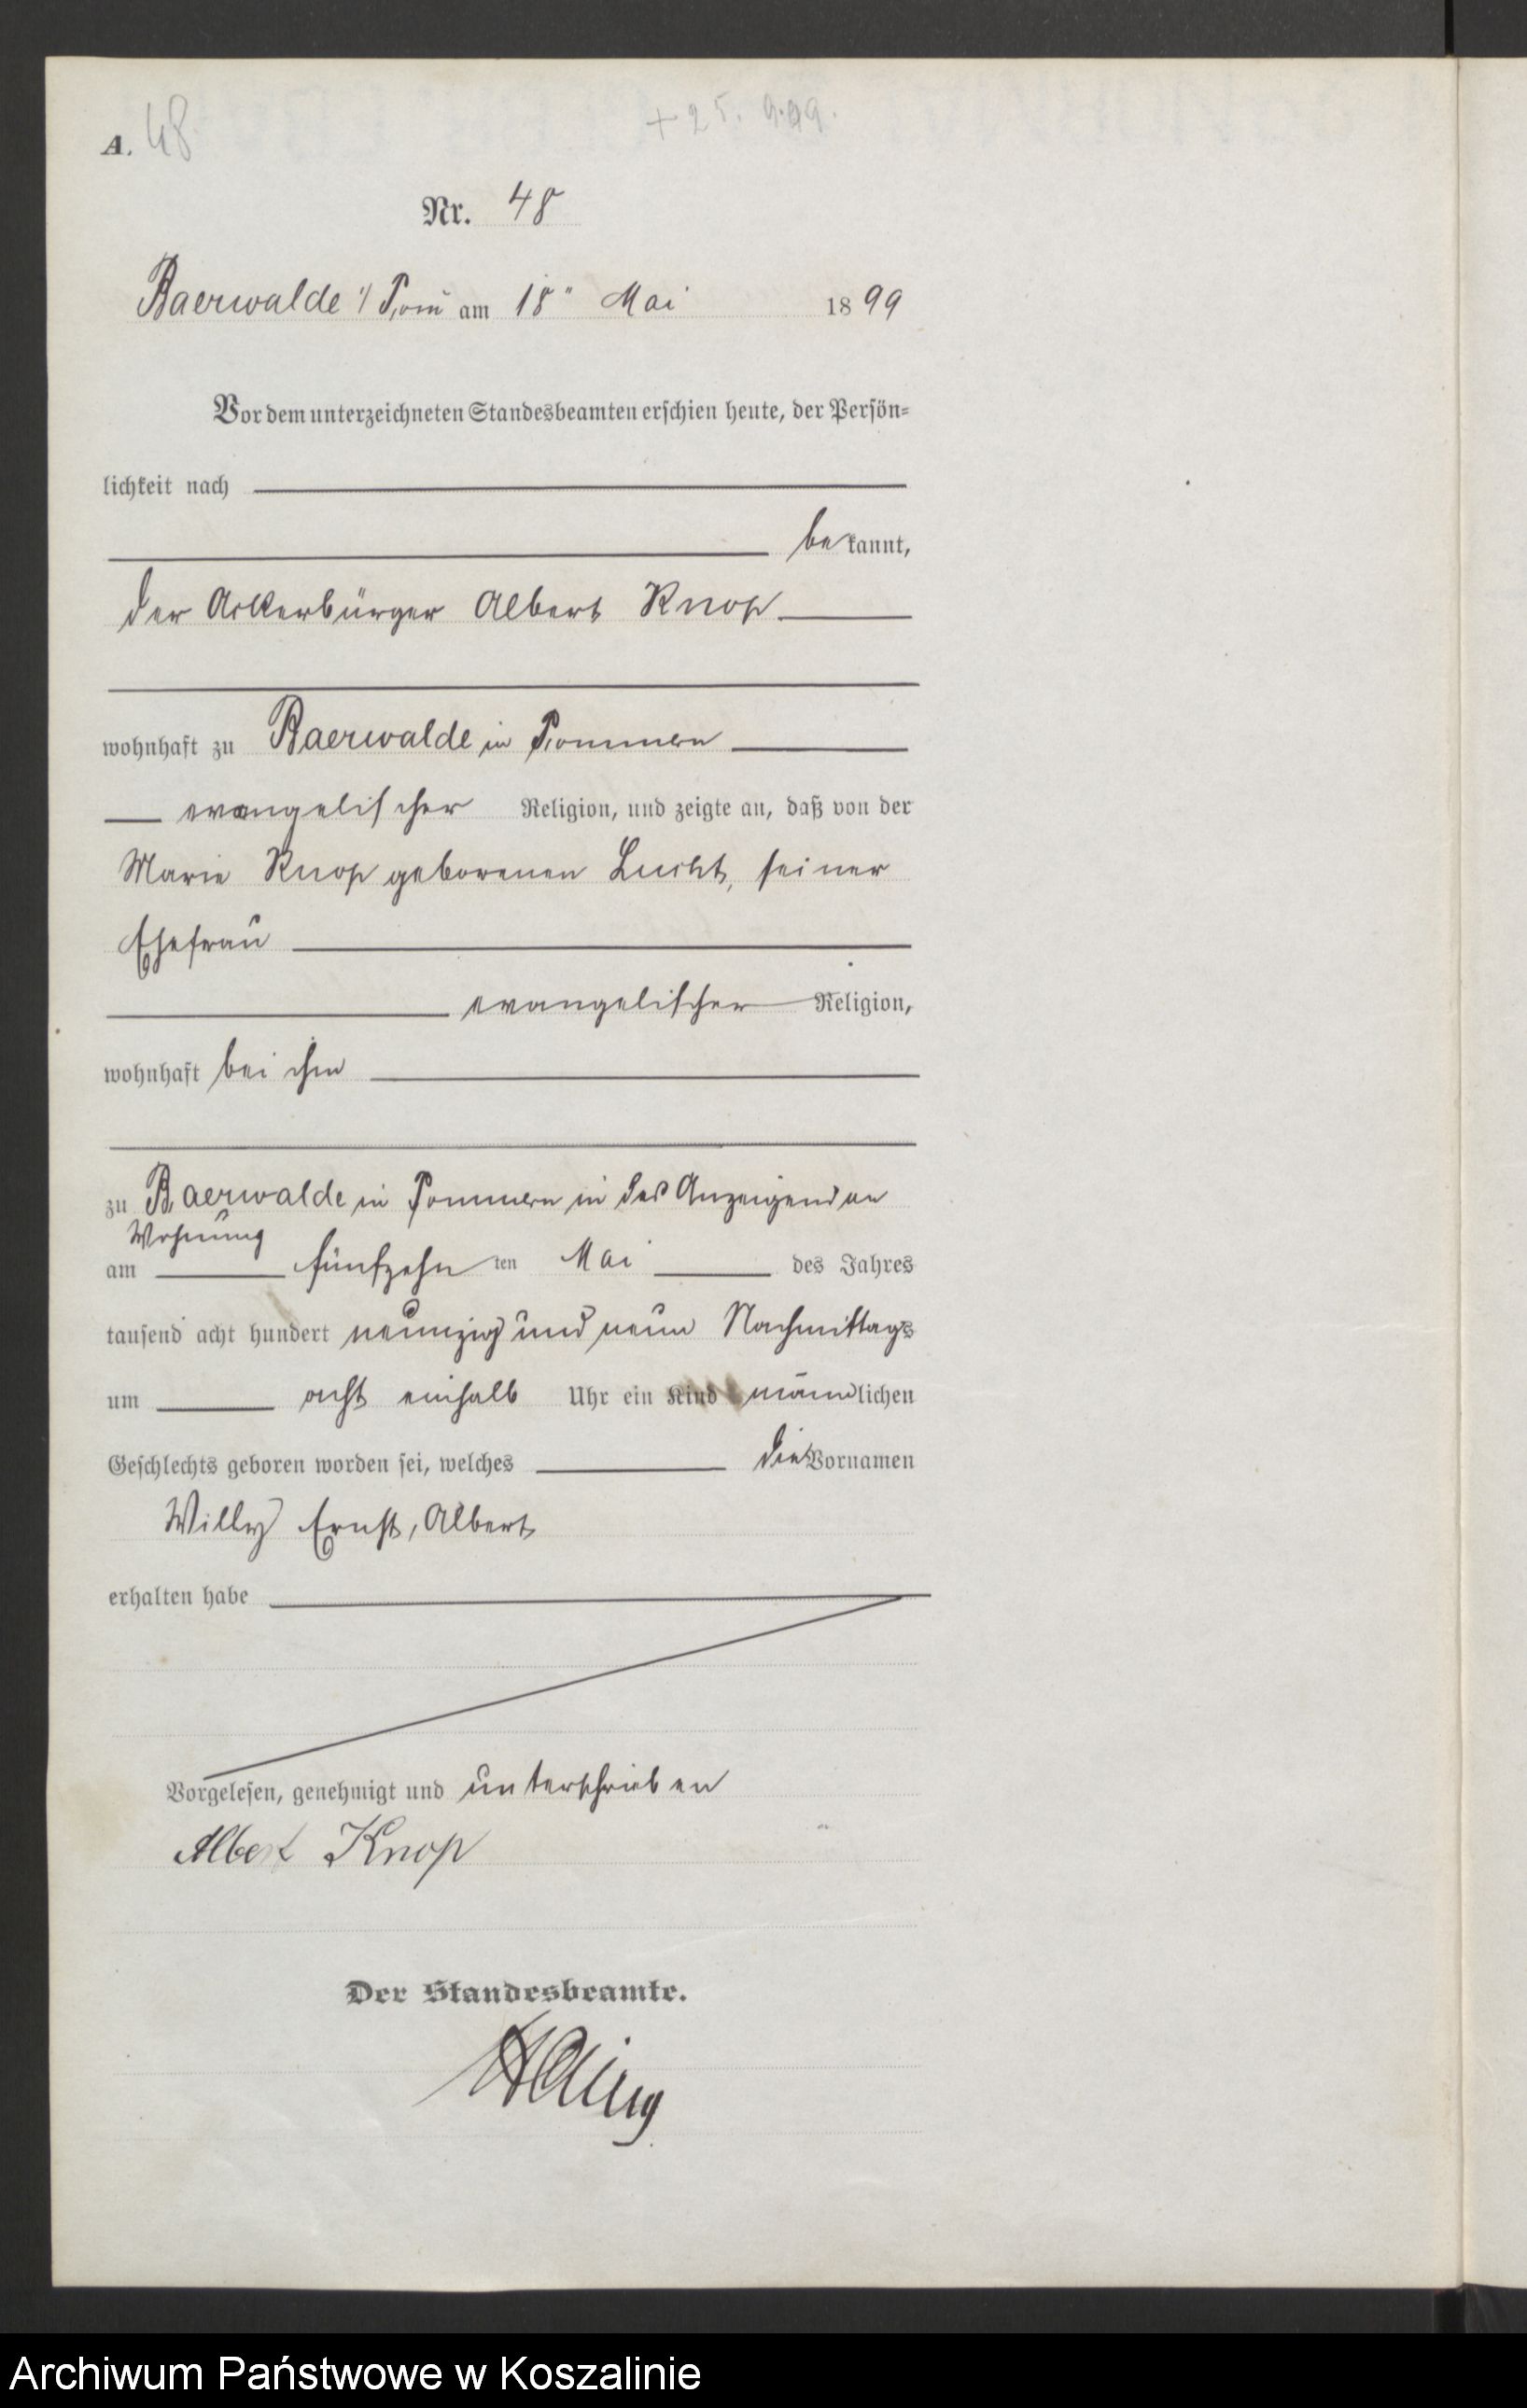 A. 48
+ 25. 9. 99.
Nr. 48
Baerwalde i/ Pom am 18" Mai 1899
Vor dem unterzeichneten Standesbeamten erschien heute, der Persön=
lichkeit nach
bekannt,
der Ackerbürger Albert Knop
wohnhaft zu Baerwalde in Pommern
evangelischer Religion, und zeigte an, daß von der
Marie Knop geborenen Lucht, seiner
Ehefrau
evangelischer Religion,
wohnhaft bei ihm
zu Baerwalde in Pommern in des Anzeigenden
Wohnung
am fünfzehn ten Mai des Jahres
tausend acht hundert neunzig und neun Nachmittags
um acht einhalb Uhr ein Kind männlichen
Geschlechts geboren worden sei, welches die Vornamen
Willy Ernst, Albert
erhalten habe
Vorgelesen, genehmigt und unterschrieben
Albert Knop
Der Standesbeamte.
Archiwum Państwowe w Koszalinie